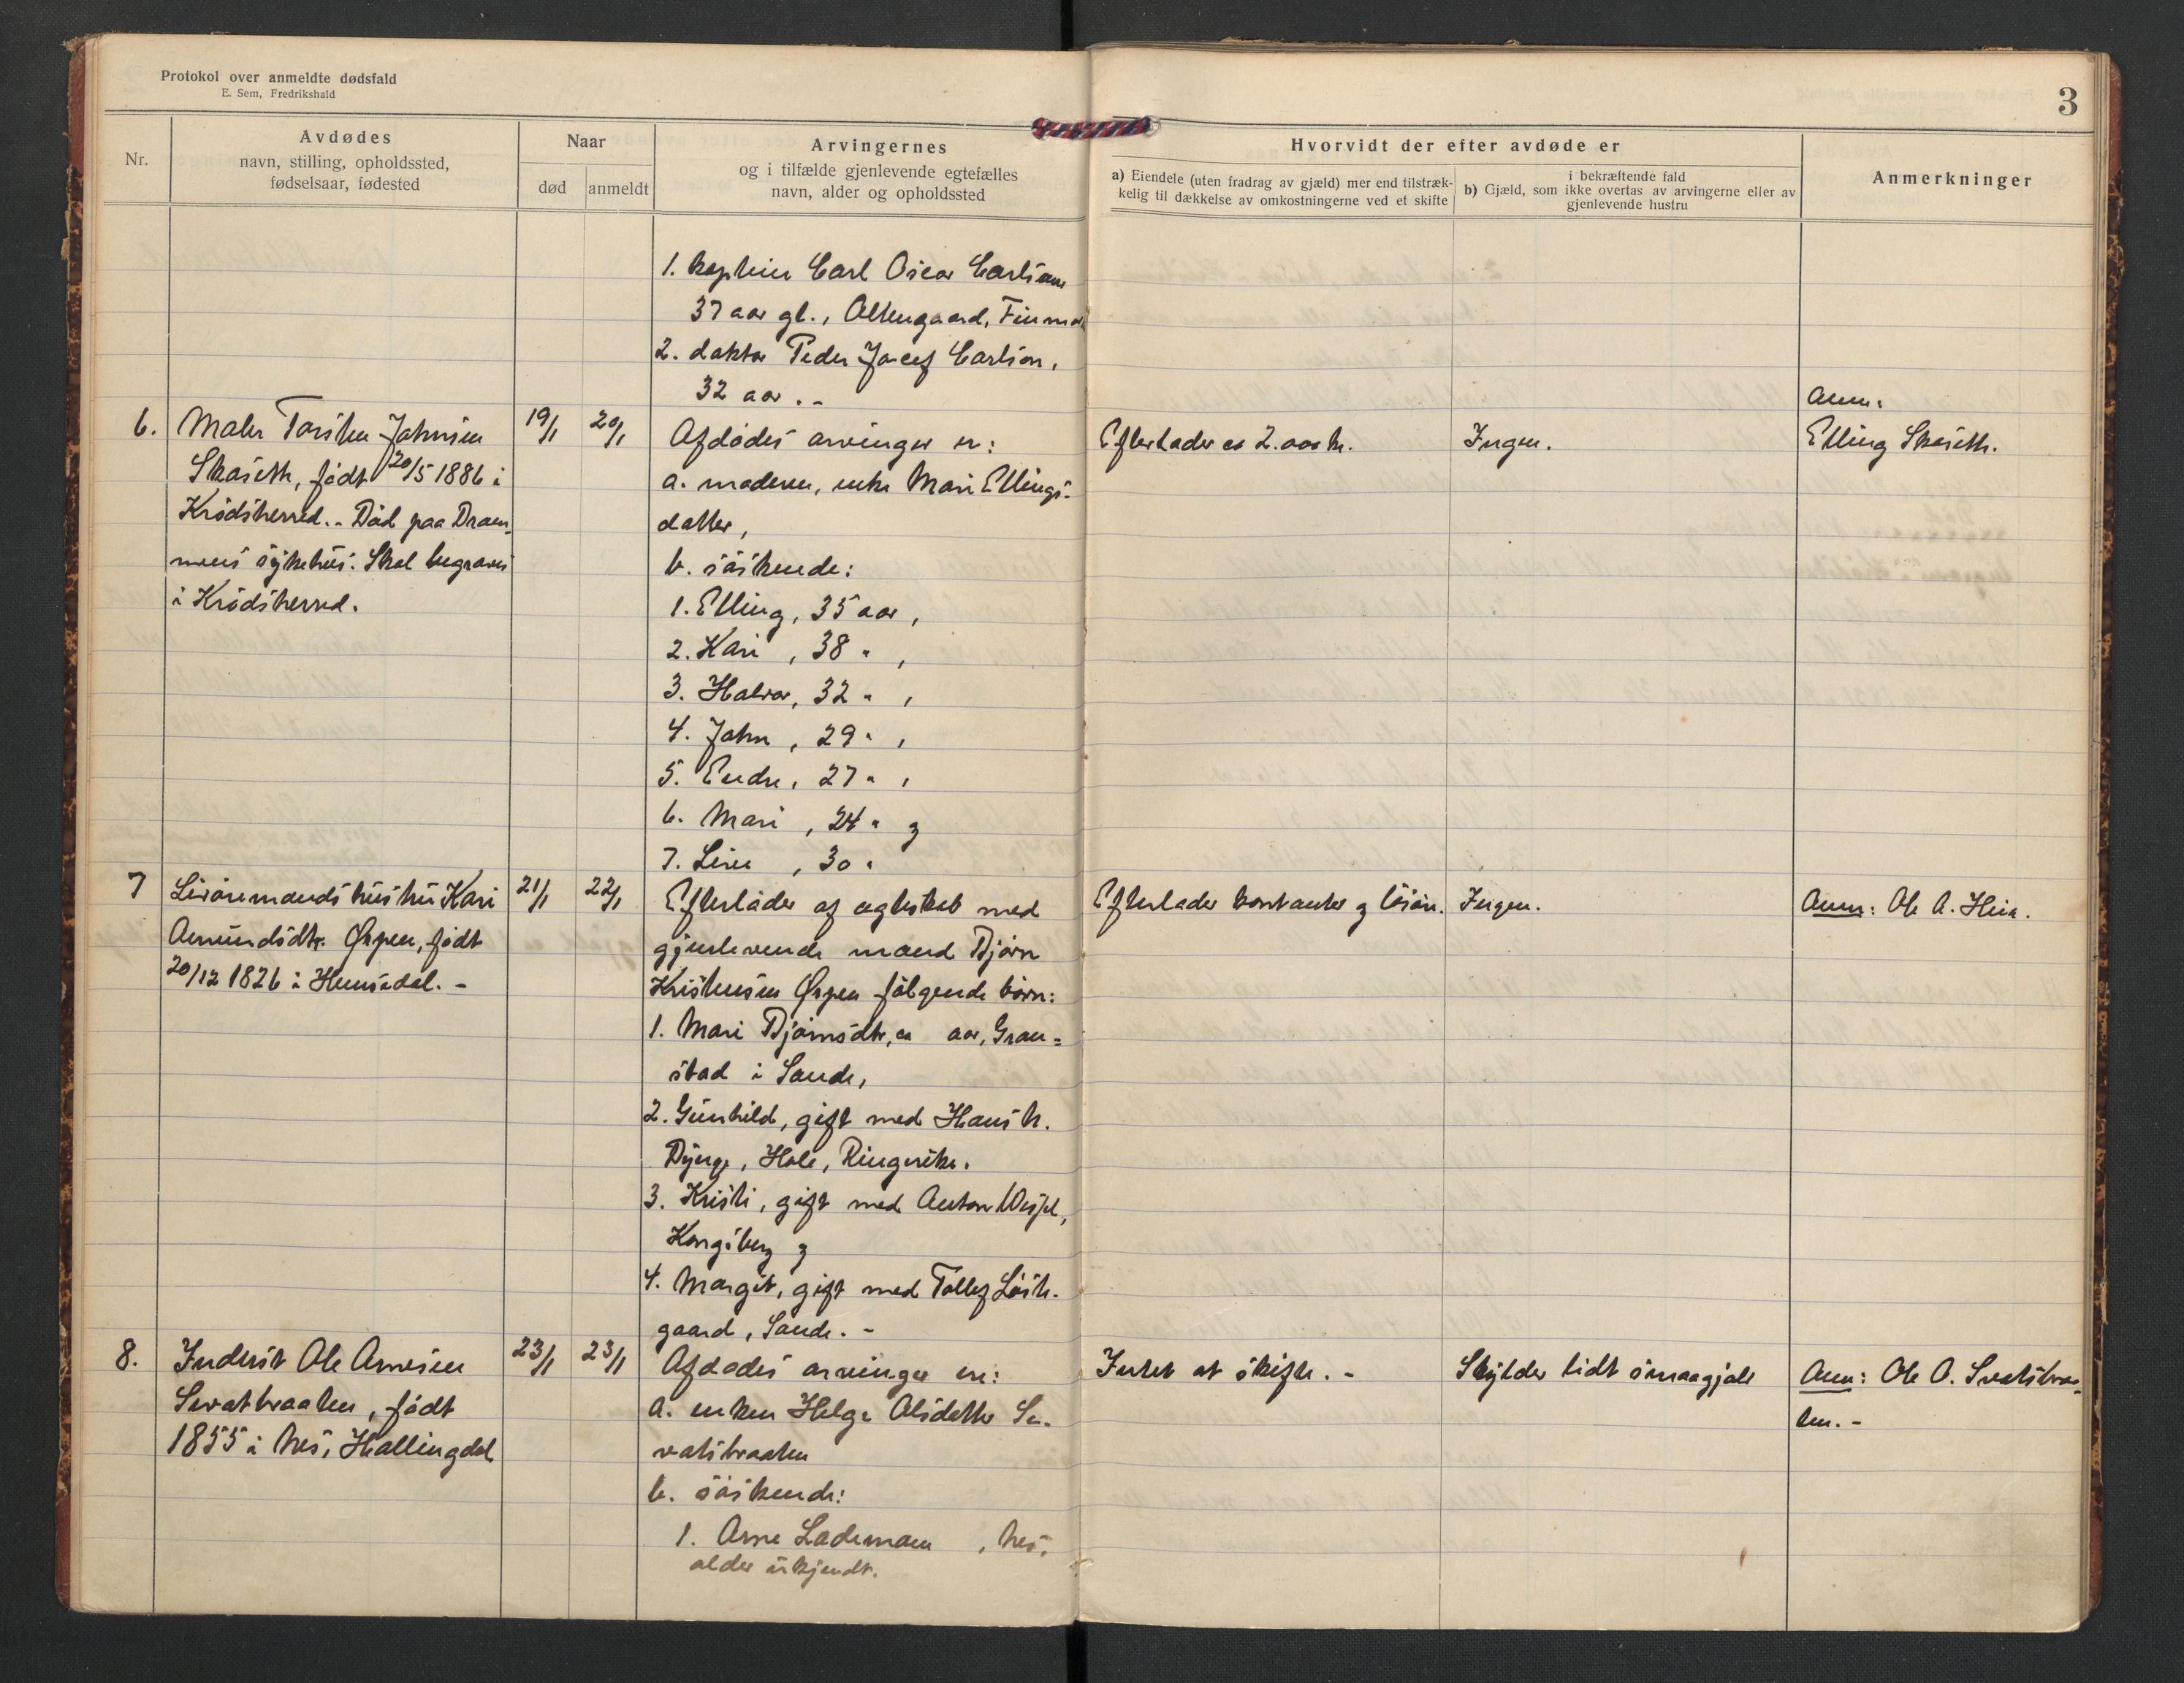 Protokol over anmeldte dødsfald
E. Sem, Fredrikshald
3
Nr.
Avdødes
navn, stilling, opholdssted,
fødselsaar, fødested
Naar
død
anmeldt
Arvingernes
og i tilfælde gjenlevende egtefælles
navn, alder og opholdssted
Hvorvidt der efter avdøde er
a) Eiendele (uten fradrag av gjæld) mer end tilstræk-
kelig til dækkelse av omkostningerne ved et skifte
i bekræftende fald
b) Gjæld, som ikke overtas av arvingerne eller av
gjenlevende hustru
Anmerkninger
1. kaptein Carl Oscar
37 aar gl., Altengaard,
2. doktor Peder Carlson,
32 aar.-
6.
Maler Torsten Johnsen
Skaseth, født 20/5 1886 i
Krødsherred.- Død paa Dram-
mens sykehus. Skal begraves
i Krødsherred.
19/1
20/1
Afdødes arvinger er:
a. moderen, enke Mari Ellings-
datter,
b. søskende:
1. Elling, 35 aar,
2. Kari, 38 " ,
3. Halvor, 32 " ,
4. John, 29 " ,
5. Endre, 27 " ,
6. Mari, 24 " og
7. Line, 30 "
Efterlader ca 2.000 kr.
Ingen.
Anm:
Elling Skaseth.
7
Livøremands hustru Kari
Amundsdtr. Ørpen, født
20/12 1826 i Hemsedal. -
21/1
22/1
Efterlader af egteskab med
gjenlevende mand Bjørn
Kristensen Ørpen følgende børn:
1. Mari Bjørnsdtr, ca aar, Gran-
stad i Sande,
2. Gunhild, gift med Hans K.
Hole, Ringerike.
3. Kristi, gift med Anton
Kongsberg og
4. Margit, gift med Tollef
gaard, Sande. -
Efterlader kontanter og løsøre.
Ingen.
Anm: Ole A. Heia.
8.
Inderst Ole Arnesen
Sevatbraaten, født
1855 i Nes, Hallingdal
23/1
23/1
Afdødes arvinger er:
a. enken Helge Olsdatter Se-
vatsbraaten
b. søskende:
1. Arne Lademoen , Nes,
alder ukjendt.
Intet at skifte. -
Skylder lidt smaagjæld
Anm: Ole O. Svatsbraa-
ten. -